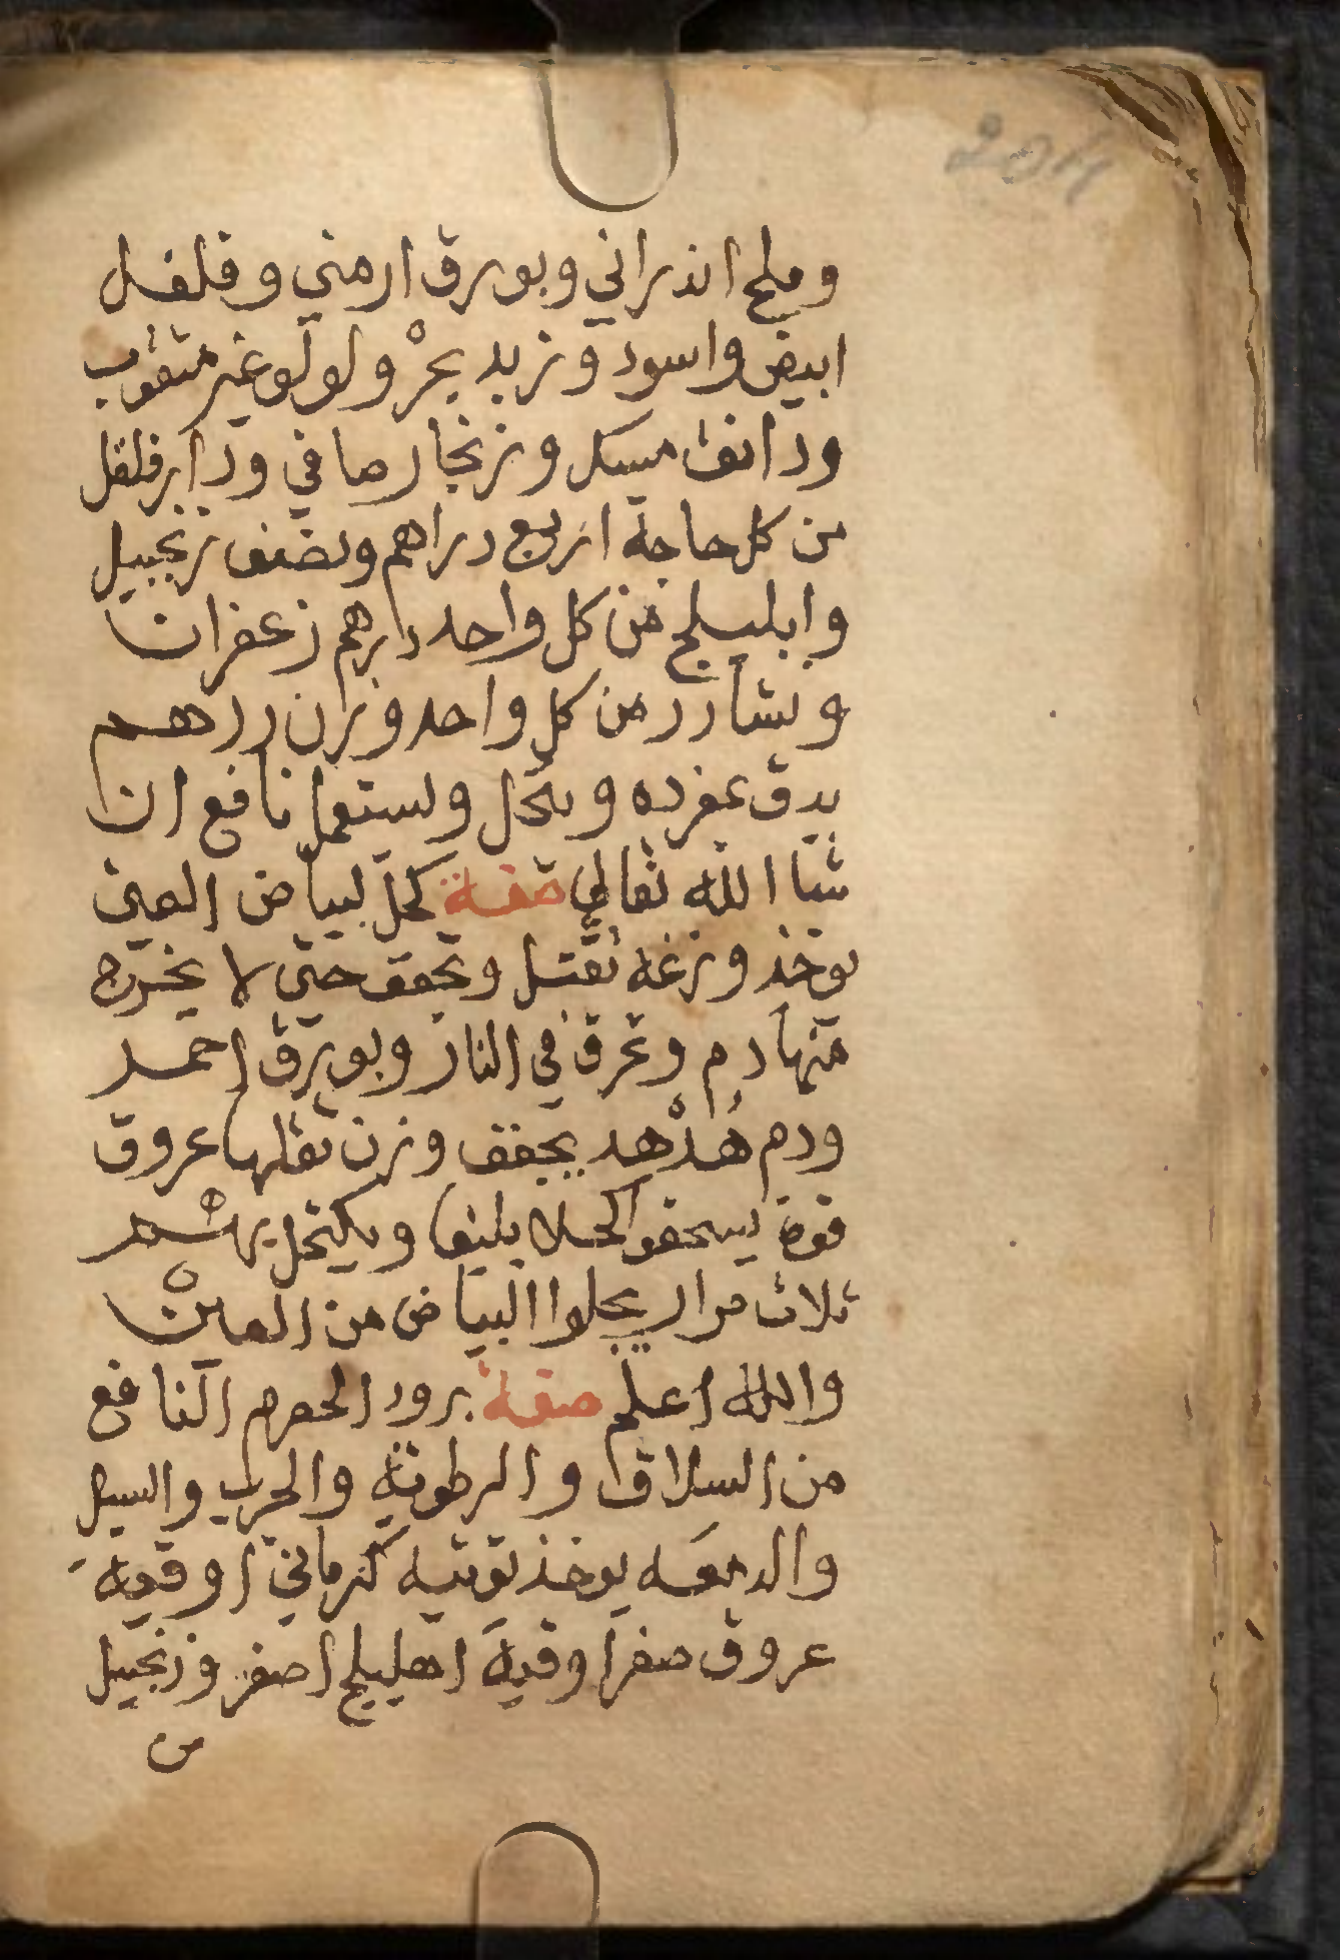 204
وملح اندراني وبورق ارمني وفلفل
ابيض واسود وزبد بحرْ ولولو غير مثقوب
ودانق مسك وزنجار صافي ودارفلفل
من كل حاجة اربع دراهم ونصف زنجبيل
وابليلج من كل واحد درهم زعفران
ونشادر من كل واحد وزن درهم
يدق بمفرده وينخل ويستعمل نافع ان
شا الله تعالي صفة كحل لبياض العين
يوخذ وزغه تقتل وتجفف حتي لا يخرج
منها دم وتحرق في النار وبورق احمر
ودم هُدْهد يجفف وزن ثقلها عروق
فوة يسحقو الكل بليغا ويكتحل بهم
ثلاث مرار يجلوا البياض من العين
والله اعلم صفة برود الحصرم النافع
من السلاق والرطوبة والجرب والسبل
والدمعه يوخذ توتيه كرماني اوقيه
عروق صفر اوقية اهليلج اصفر وزنجبيل
من